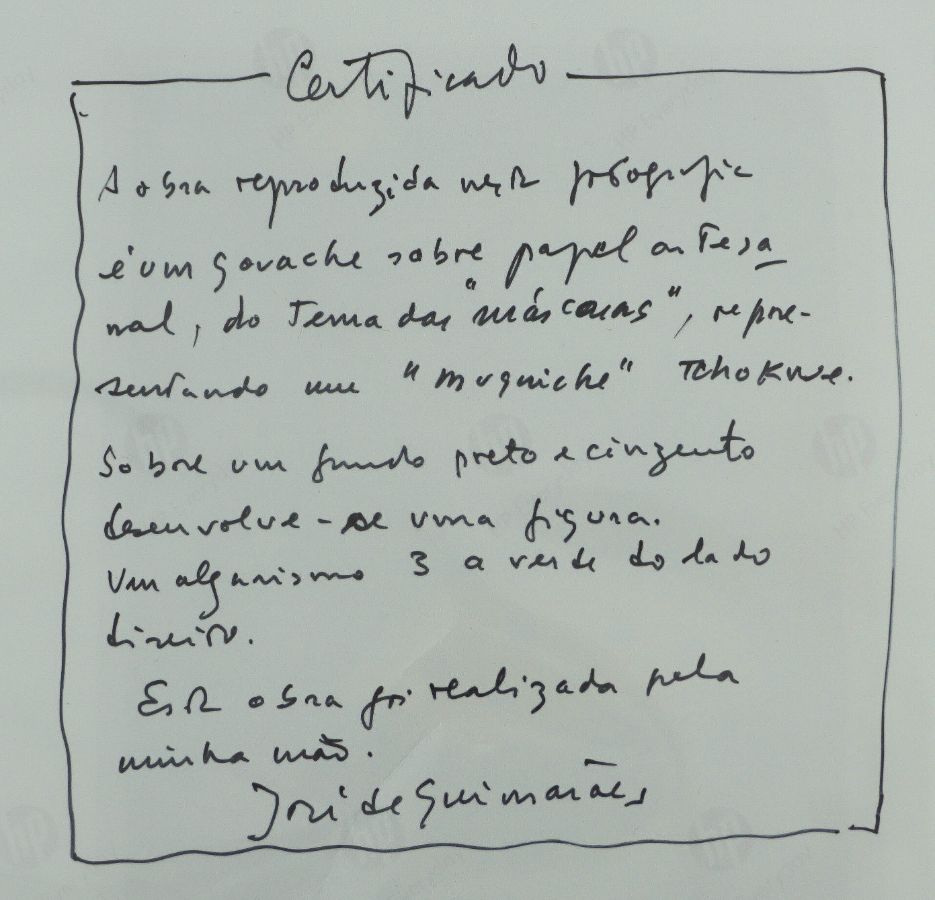 Certificado
A obra reproduzida nesta fotografia
é um gouache sobre papel artesa
nal, do Tema das "máscaras", repre-
sentando um "Muquiche" Tchokwe.
Sobre um fundo preto e cinzento
desenvolve-se uma figura.
Um algarismo 3 a verde do lado
direito.
Esta obra foi realizada pela
minha mão.
José de Guimarães